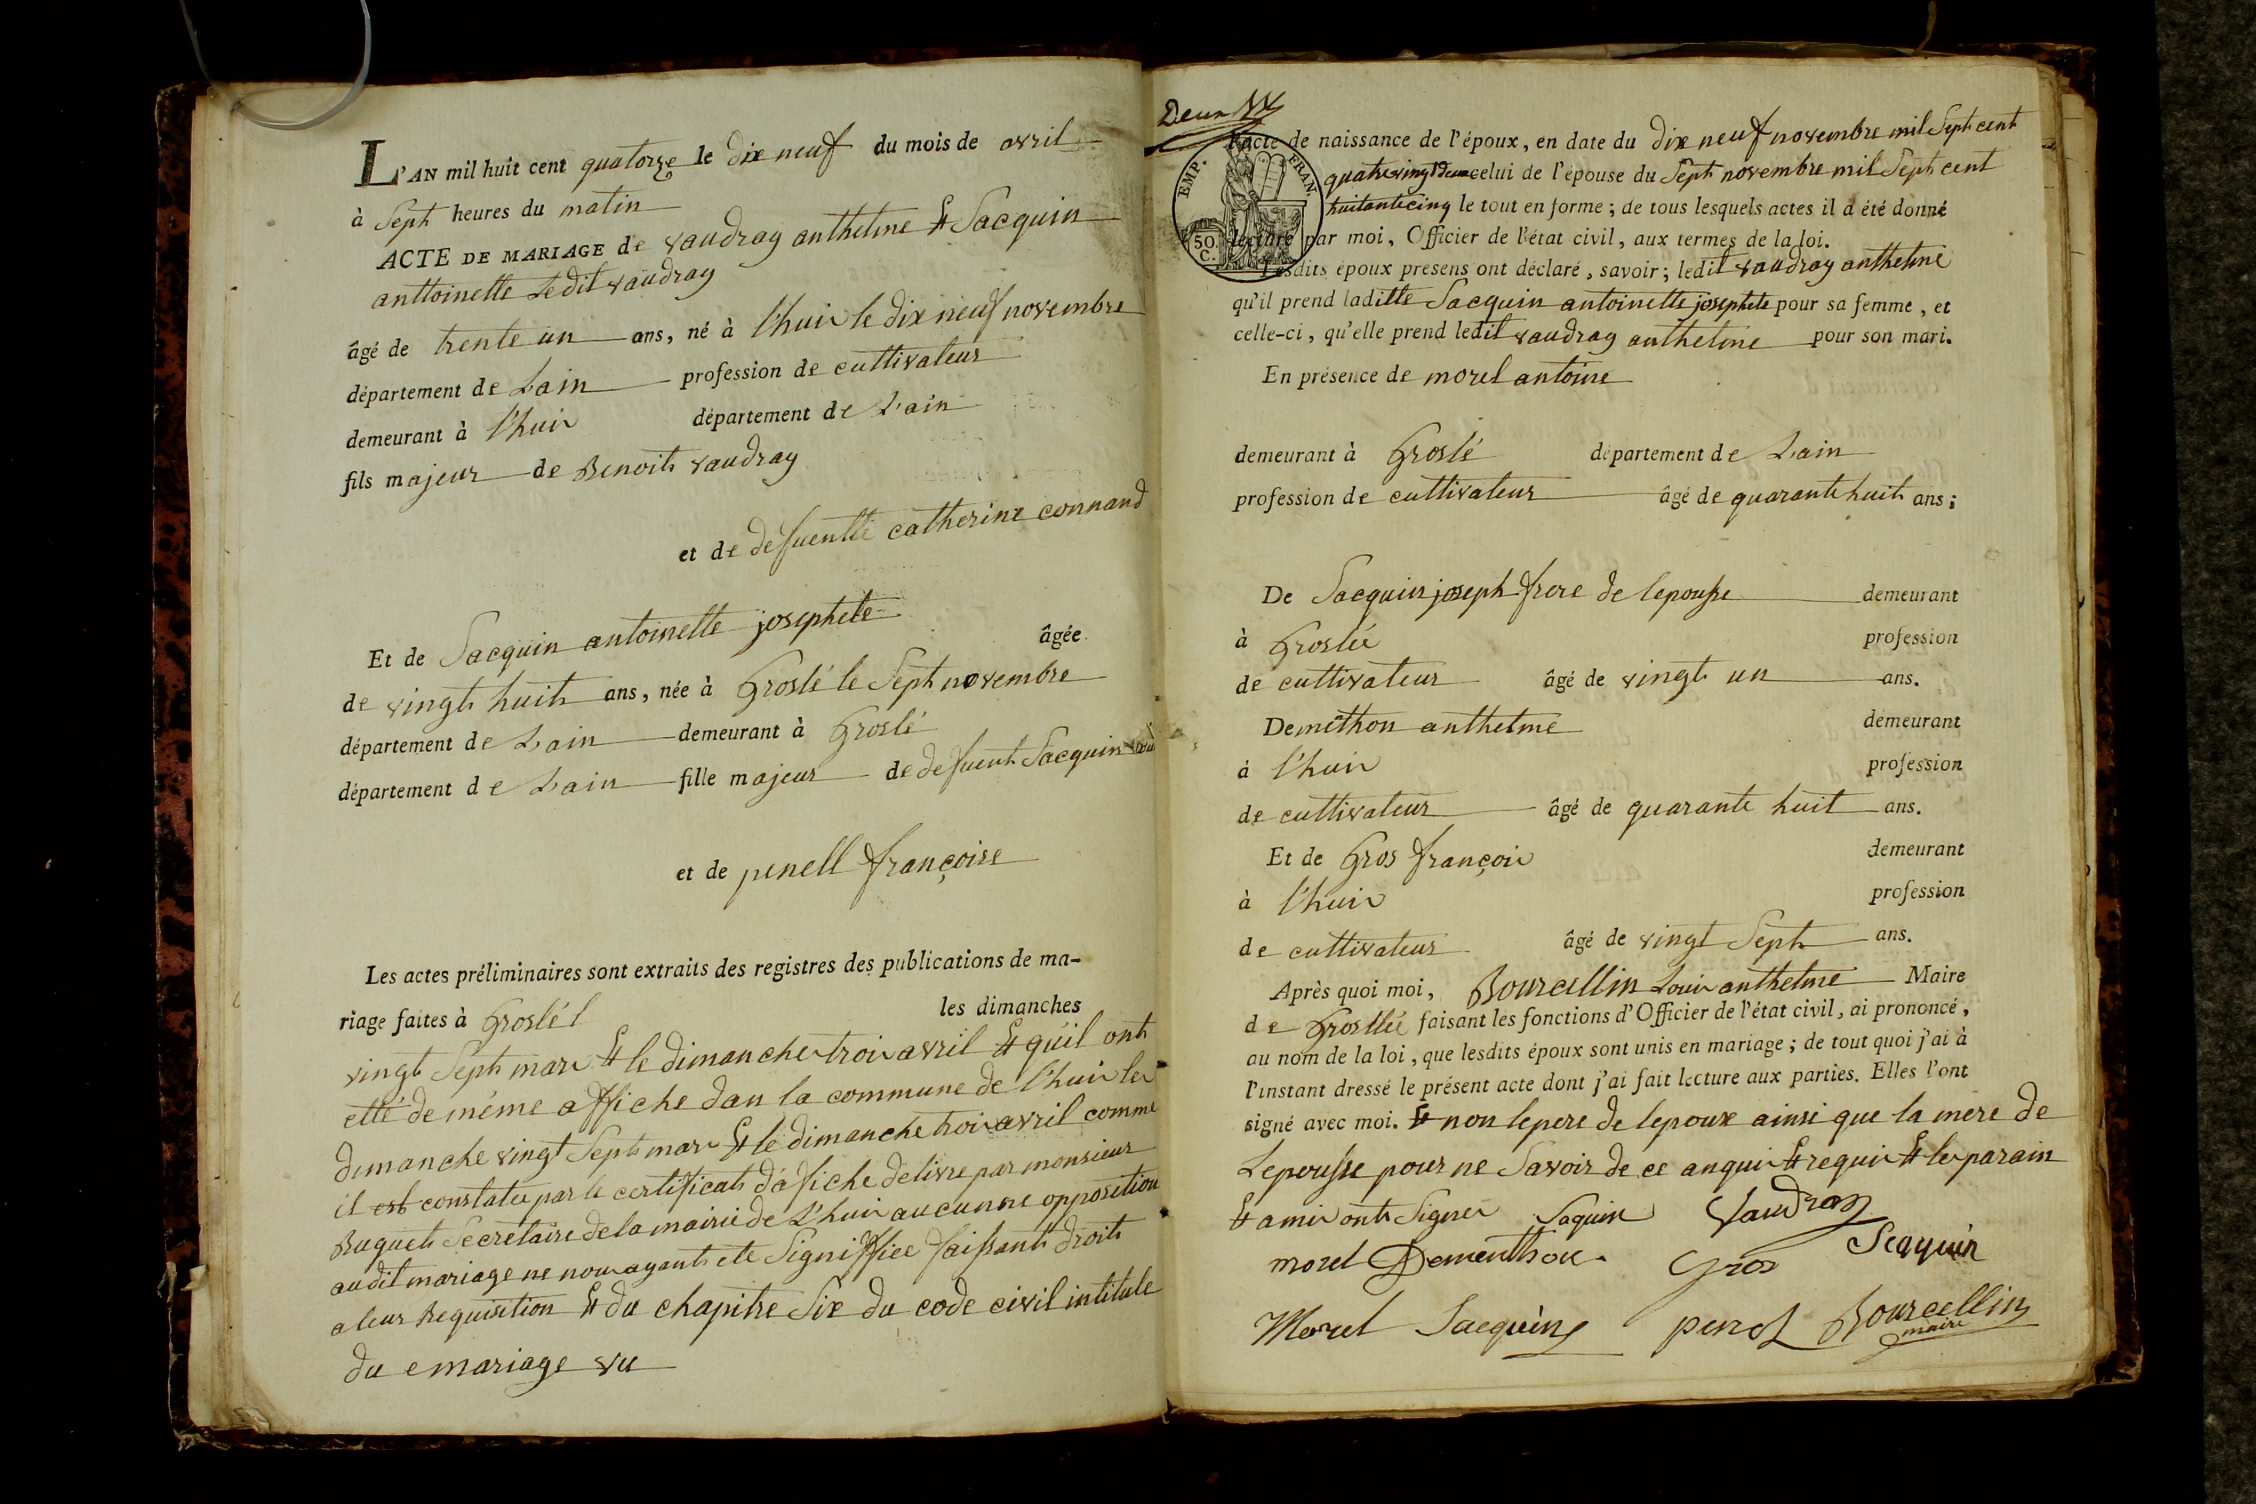 L'AN mil huit cent quatorze le dix neuf du mois de avril
à Sept heures du matin
ACTE DE MARIAGE de vaudray anthelme et Sacquin
anttoinette Ledit vaudray
âgé de trente un ans, né à l'huis le dix neuf novembre
département de Lain profession de cultivateur
demeurant à l'huis département de L'ain
fils majeur de Benoit vaudray
et de defuentte catherine connand
Et de Sacquin antoinette josephete âgée
de vingt huit ans, née à Groslé le Sept novembre
département de Lain demeurant à Groslé
département de Lain fille majeur de defuent Sacquin
et de penell françoise
Les actes préliminaires sont extraits des registres des publications de ma-
riage faites à Groslé les dimanches
vingt Sept mars et le dimanche trois avril et quil ont
etté de même affiche dan la commune de l'huis les
dimanche vingt Sept mars et le dimanche trois avril comme
il est constatée par le certificat d'afiche delivre par monsieur
Buquet Secretaire de la mairie de L'huis aucunne opposetion
au dit mariage ne nous ayant ete Signiffiee faissant droit
a leur Requisition et du chapitre Six du code civil intitule
du emariage vu
Deux
l'acte de naissance de l'époux, en date du dix neuf novembre mil Sept cent
quatrevingt deux celui de l'épouse du Sept novembre mil Sept cent
huitantecinq le tout en forme ; de tous lesquels actes il a été donné
lecture par moi, Officier de l'état civil, aux termes de la loi.
EMP. FRAN.
50. C.
Lesdits époux présens ont déclaré, savoir ; ledit vaudray anthelme
qu'il prend laditte Sacquin antoinette josephete pour sa femme, et
celle-ci, qu'elle prend ledit vaudray anthelme pour son mari.
En présence de morel antoine
demeurant à Groslé département de Lain
profession de cultivateur âgé de quarante huit ans ;
De Sacquin joseph frere de lepousse demeurant
à Groslée profession
de cultivateur âgé de vingt un ans.
De methon anthelme demeurant
à l'huis profession
de cultivateur âgé de quarante huit ans.
Et de Gros françois demeurant
à l'huis profession
de cultivateur âgé de vingt Sept ans.
Après quoi moi, Bourcellin Louis anthelme Maire
de Grosllée faisant les fonctions d'Officier de l'état civil, ai prononcé,
au nom de la loi, que lesdits époux sont unis en mariage ; de tout quoi j'ai à
l'instant dressé le présent acte dont j'ai fait lecture aux parties. Elles l'ont
signé avec moi. et non lepere de lepoux ainsi que la mere de
Lepousse pour ne Savoir de ce anquis et requis et les parain
et amis ont Signer Saquin Vaudray
morel Dementhon Gros Scaquin
Morel Sacquin penel Bourcellin
maire